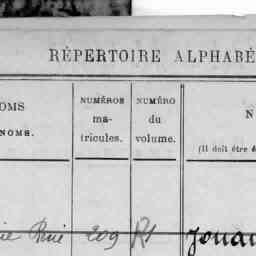 RÉPERTOIRE ALPHABÉ
OMS
NOMS.
NUMÉROS
ma-
tricules.
NUMÉRO
du
volume.
N
(Il doit être é
209 R1 Jouan